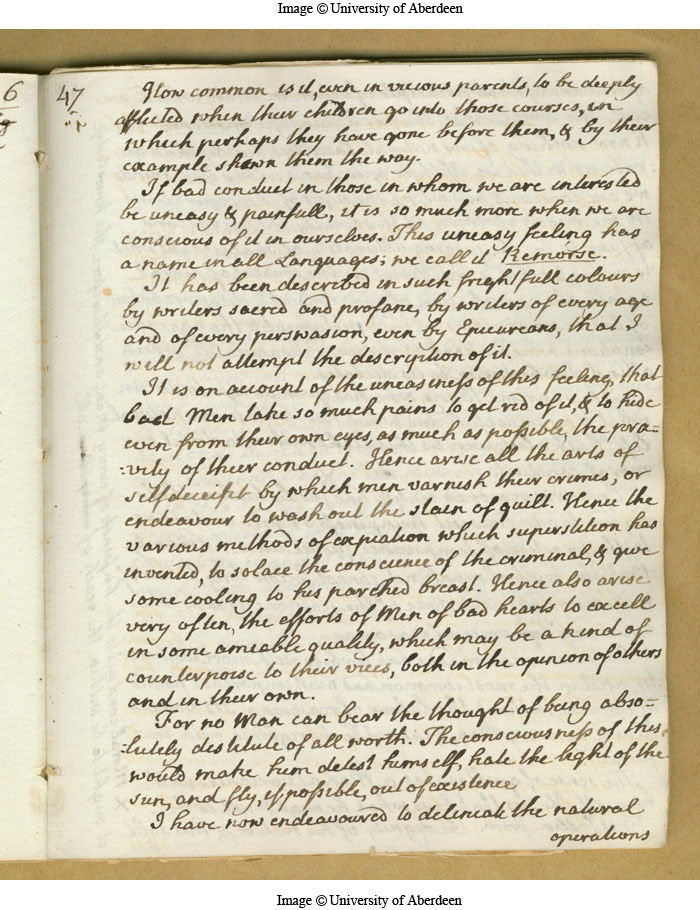 Image © University of Aberdeen
6
47
How common is it, even in vicious parents, to be deeply
afflicted when their children go into those courses, in
which perhaps they have gone before them, & by their
example shown them the way.
If bad conduct in those in whom we are interested
be uneasy & painfull, it is so much more when we are
conscious of it in ourselves. This uneasy feeling has
a name in all Languages; we call it Remorse.
It has been described in such frightfull colours
by writers sacred and profane, by writers of every age
and of every perswasion, even by Epicureans, that I
will not attempt the description of it.
It is on account of the uneasiness of this feeling, that
bad Men take so much pains to get rid of it, & to hide
even from their own eyes, as much as possible, the pra=
:vity of their conduct. Hence arise all the arts of
selfdeceipt by which men varnish their crimes, or
endeavour to wash out the stain of guilt. Hence the
various methods of expiation which superstition has
invented, to solace the conscience of the criminal, & give
some cooling to his parched breast. Hence also arise
very often, the efforts of Men of bad hearts to excell
in some ameable quality, which may be a kind of
counterpoise to their vices, both in the opinion of others
and in their own.
For no Man can bear the thought of being abso=
:lutely destitute of all worth. The consciousness of this
would make him detest himself, hate the light of the
sun, and fly, if possible, out of existence
I have now endeavoured to delineate the natural
operations
Image © University of Aberdeen